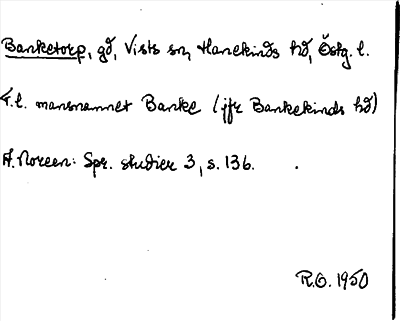 Banketorp, gd, Vists sn, Hanekinds hd, Östg. l.
T.l. mansnamnet Banke (jfr Bankekinds hd)
A. Noreen: Spr. studier 3, s. 136.
R.O. 1950